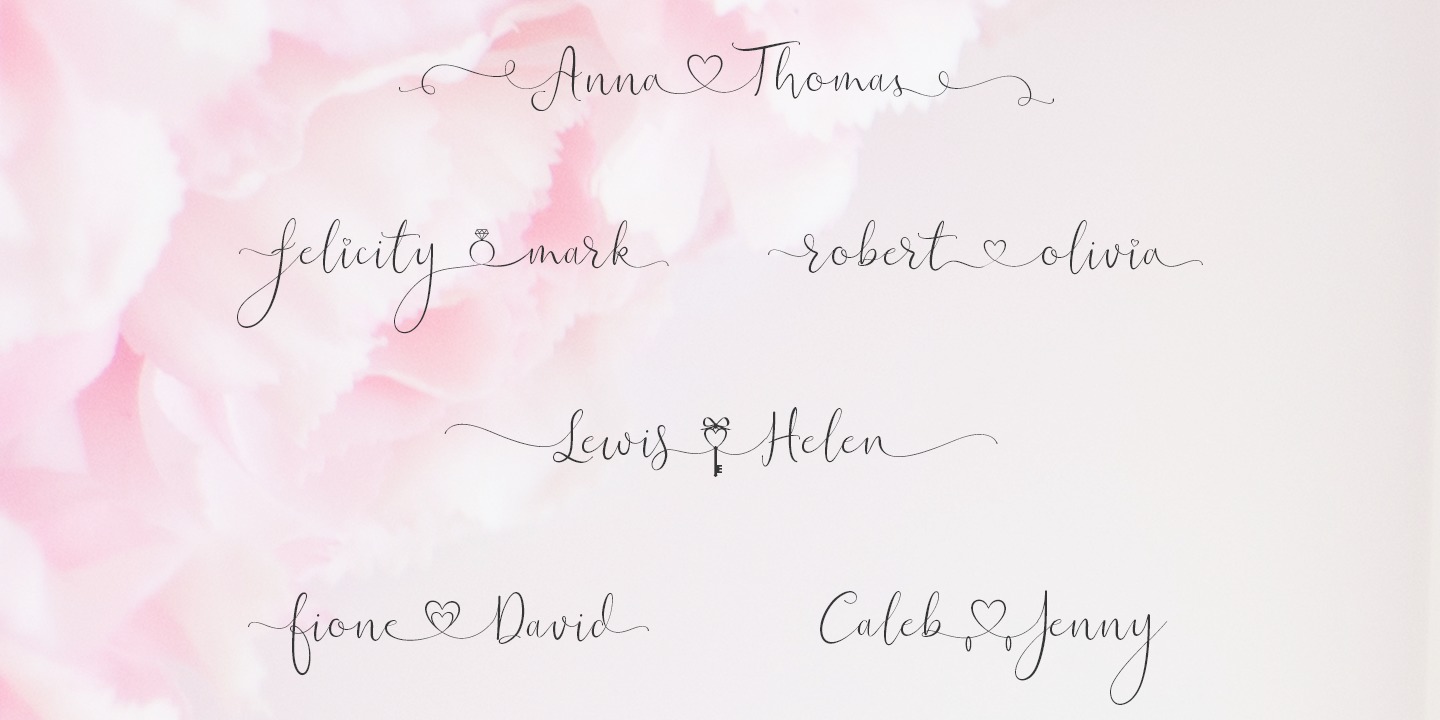 Anna Thomas
felicity mark
robert olivia
Lewis Helen
fione David
Caleb Jenny